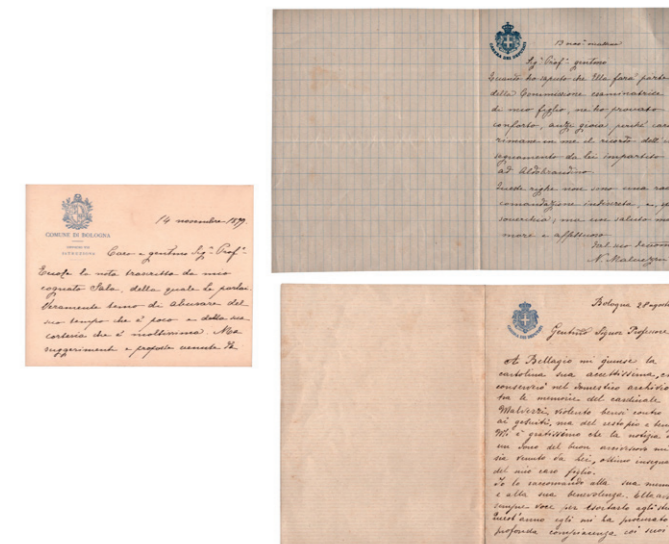 COMUNE DI BOLOGNA
14 novembre 1899.
Caro e gentmo Sig. Prof.
la nota trascritta da mio
cognato Sala, della quale Le parlai
Veramente temo di abusare del
suo tempo che è poco e della sua
cortesia che è moltissima. Ma
suggerimenti e proposte venute Da
CAMERA DEI DEPUTATI
Sig. Prof. gentmo
Quando ho saputo che Ella farà parte
della Commissione esaminatrice
di mio figlio, ne ho provato
conforto, anzi gioia perché
rimane in me il ricordo dell'
segnamento da lei impartito
ad Aldobrandino.
righe non sono una
comandazione indiretta, e,
; ma un saluto
e affettuoso
Dal suo
N. Malvezzi
CAMERA DEI DEPUTATI
Bologna 28
Gentmo Signor Professore
A Bellagio mi giunse la
cartolina sua accettissima,
conserverò nel domestico archivio
tra le memorie del cardinale
Malvezzi, violento bensì contro
ai gesuiti, ma del resto pio e
Mi è gratissimo che la notizia
sia venuto da lei, ottimo
del mio caro figlio.
Io lo raccomando alla sua
e alla sua benevolenza. Ella
sempre voce per esortarlo agli
Quest'anno egli mi ha procurato
profonda compiacenza coi suoi